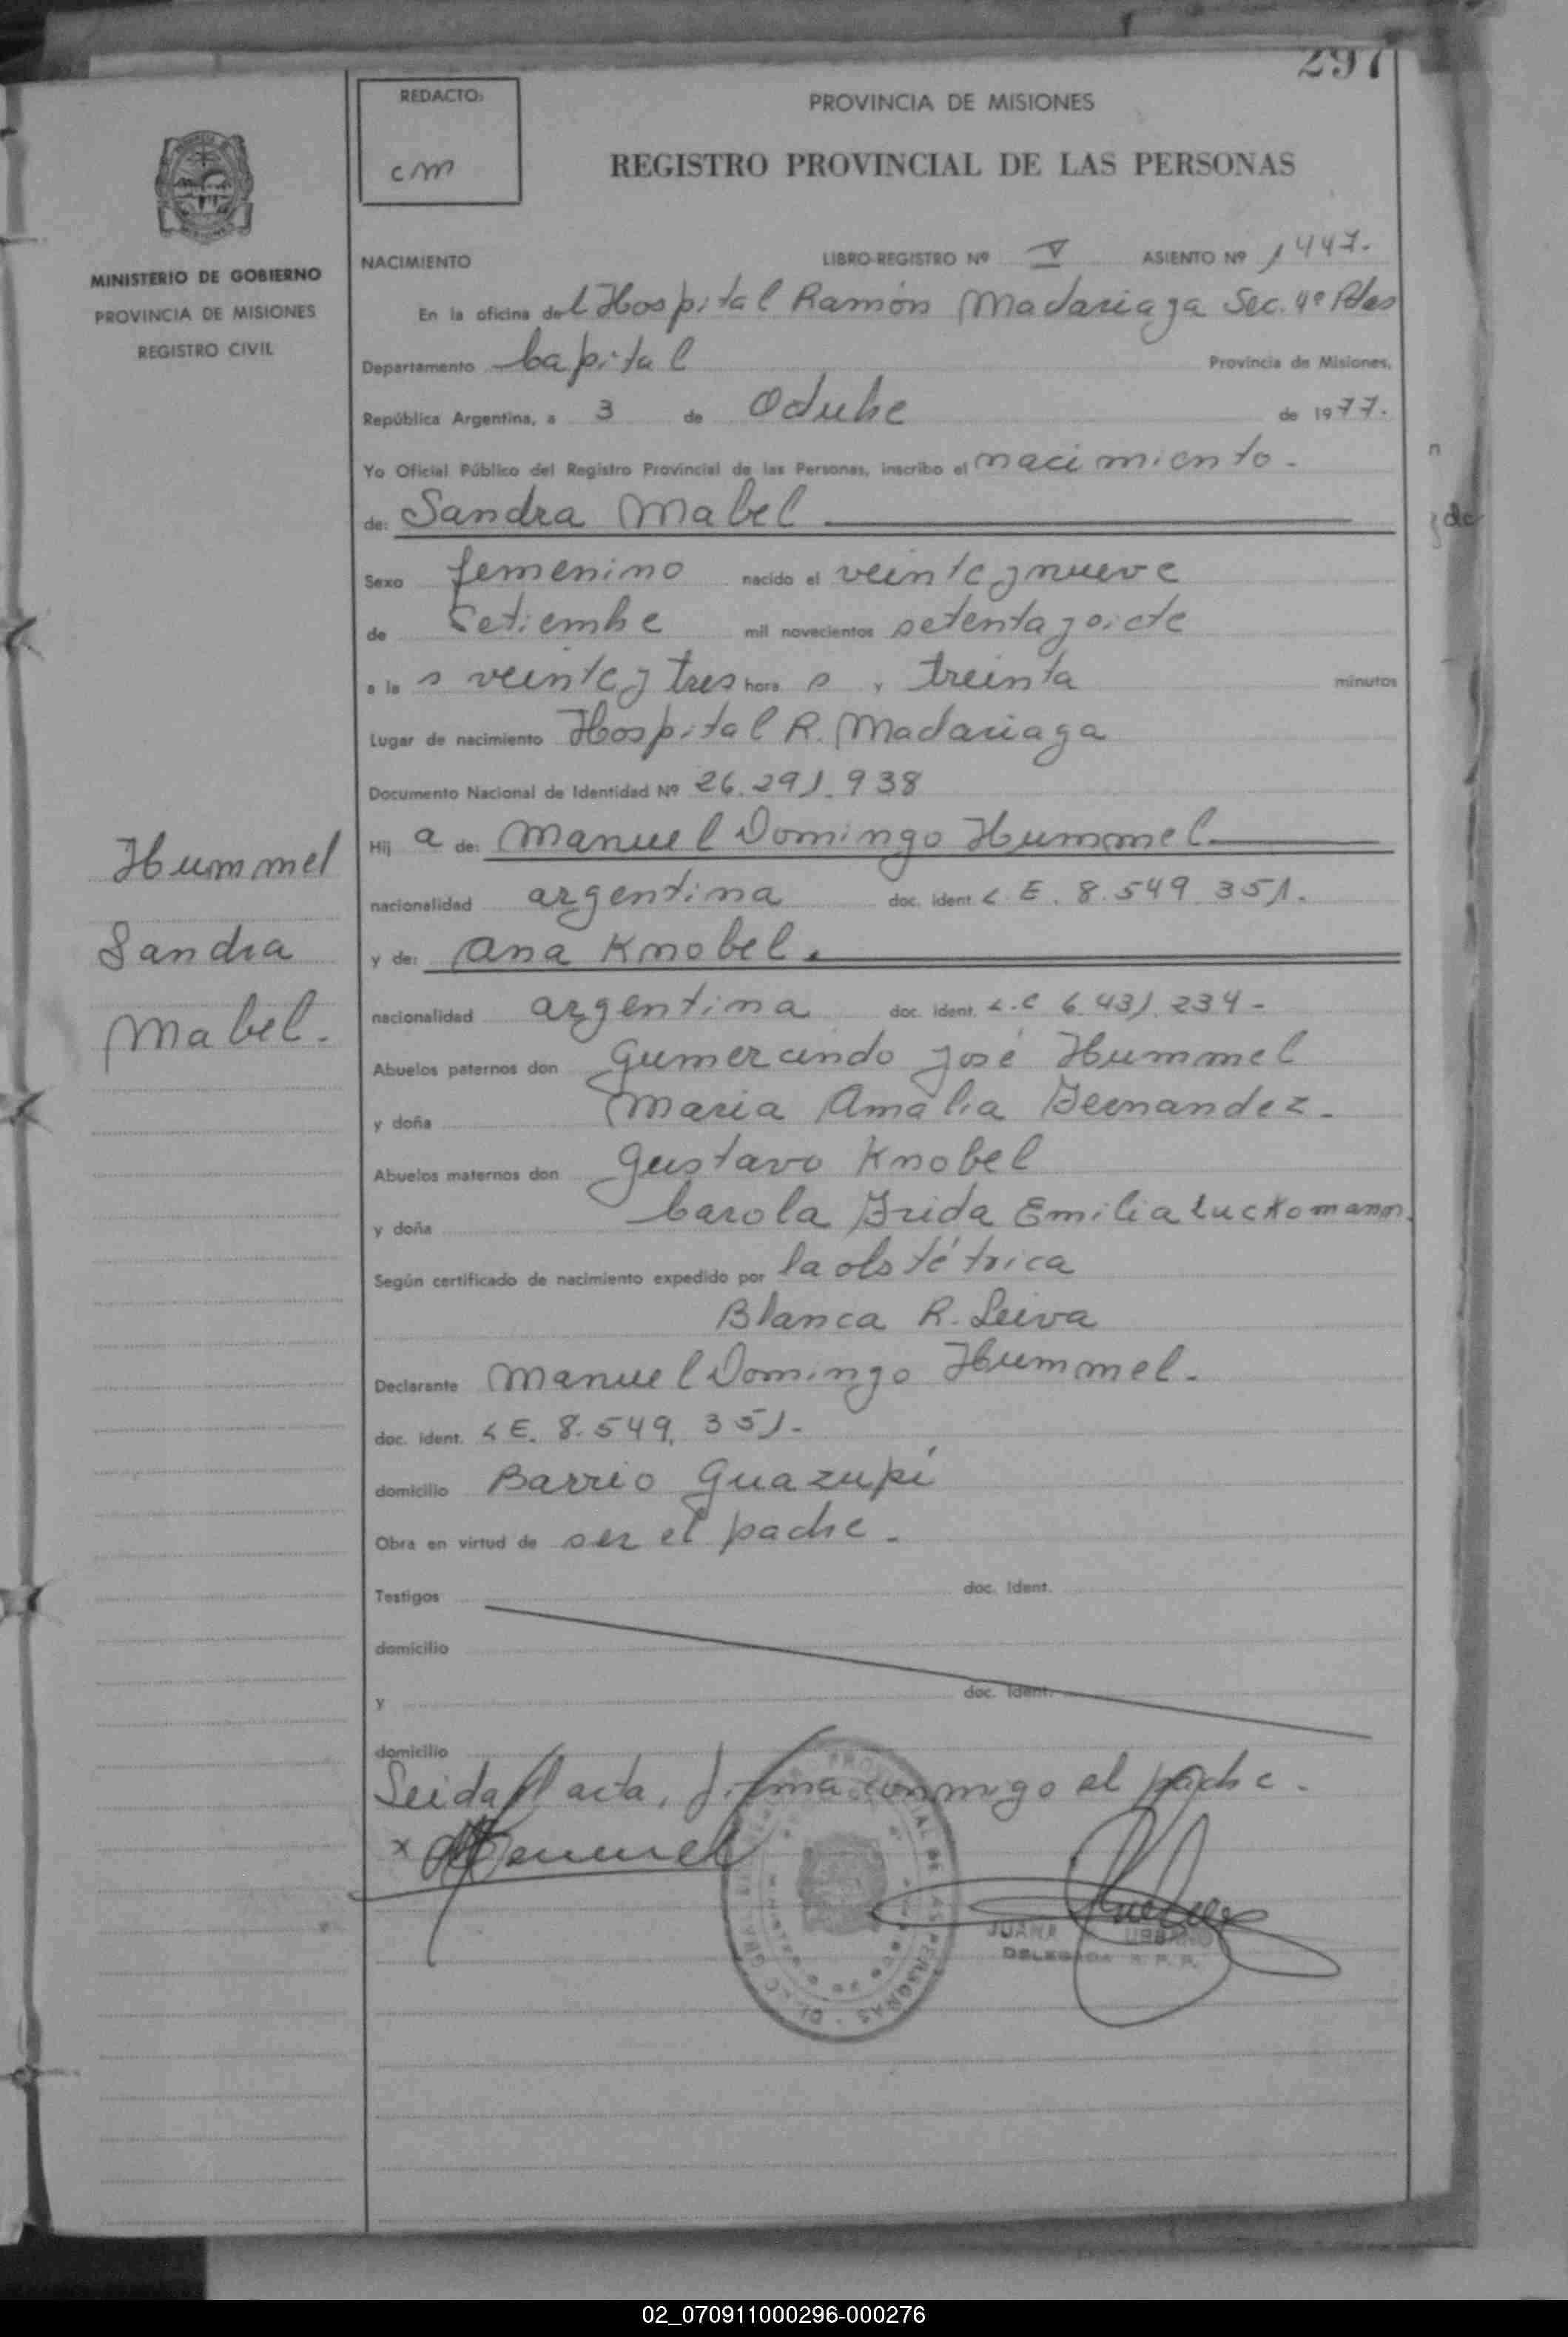 297
REDACTO:
cm
PROVINCIA DE MISIONES
REGISTRO PROVINCIAL DE LAS PERSONAS
MINISTERIO DE GOBIERNO
PROVINCIA DE MISIONES
REGISTRO CIVIL
NACIMIENTO LIBRO-REGISTRO Nº V ASIENTO Nº 1447.
En la oficina del Hospital Ramón Madariaga Sec. 4º Pdas
Departamento Capital Provincia de Misiones,
República Argentina, a 3 de Octubre de 1977.
Yo Oficial Público del Registro Provincial de las Personas, inscribo el nacimiento.
de: Sandra Mabel
Sexo femenino nacido el veinte y nueve
de Setiembre mil novecientos setenta y siete
a las veinte y tres horas y treinta minutos
Lugar de nacimiento Hospital R. Madariaga
Documento Nacional de Identidad Nº 26.291.938
Hija de: Manuel Domingo Hummel.
nacionalidad argentina doc. ident. L.E. 8.549.351.
y de: Ana Knobel.
nacionalidad argentina doc. ident. L.C 6.431.234-
Abuelos paternos don Gumercindo José Hummel
y doña Maria Amalia Fernandez.
Abuelos maternos don Gustavo Knobel
y doña Carola Frida Emilia Luckomann.
Según certificado de nacimiento expedido por la obstétrica
Blanca R. Leiva
Declarante Manuel Domingo Hummel.
doc. ident. L E. 8.549.351.
domicilio Barrio Guazupí
Obra en virtud de ser el padre.
Testigos doc. Ident.
domicilio
y doc. Ident.
domicilio
Leida el acta, firma conmigo el padre.
x
JUANA URBANO
DELEGADA R. P. P.
Hummel
Sandra
Mabel.
02_070911000296-000276